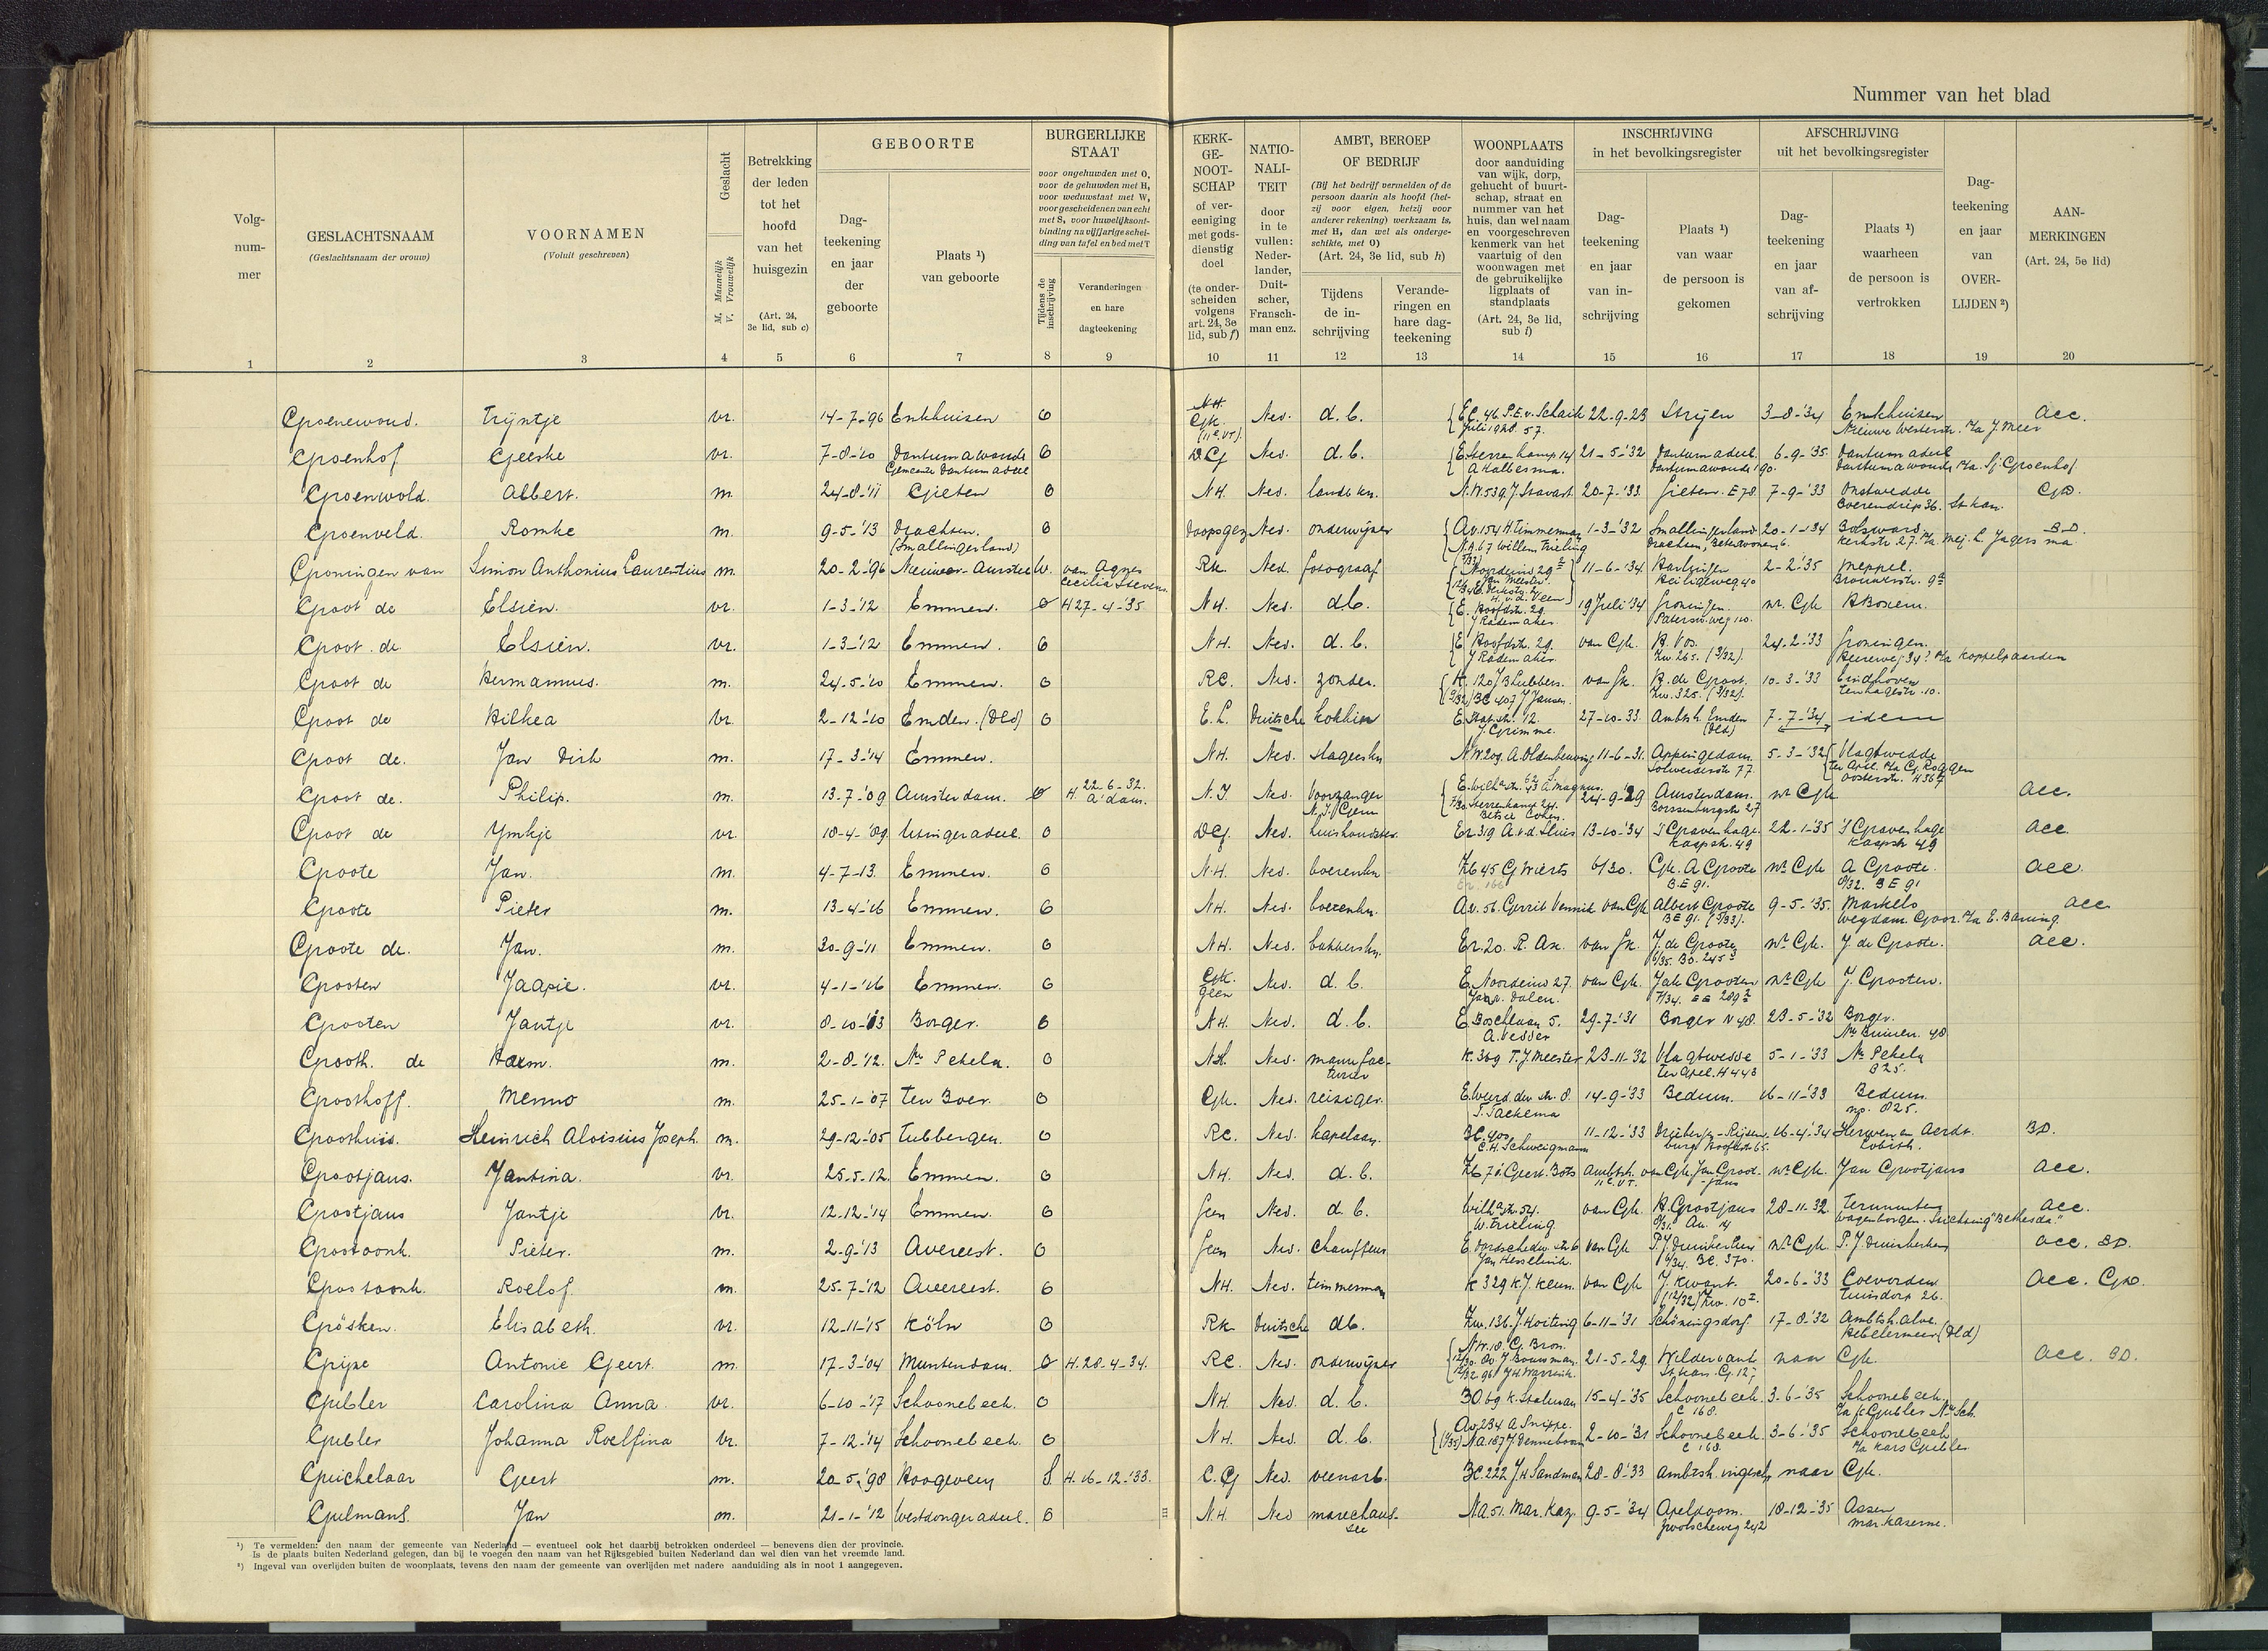 Nummer van het blad
Volg-
num-
mer
GESLACHTSNAAM
(Geslachtsnaam der vrouw)
VOORNAMEN
(Voluit geschreven)
Geslacht
M. Mannelijk
V. Vrouwelijk
Betrekking
der leden
tot het
hoofd
van het
huisgezin
(Art. 24,
3e lid, sub c)
GEBOORTE
Dag-
teekening
en jaar
der
geboorte
Plaats ¹)
van geboorte
BURGERLIJKE
STAAT
voor ongehuwden met O,
voor de gehuwden met H,
voor weduwstaat met W,
voor gescheidenen van echt
met S, voor huwelijksont-
binding na vijfjarige schei-
ding van tafel en bed met T
Tijdens de
inschrijving
Veranderingen
en hare
dagteekening
KERK-
GE-
NOOT-
SCHAP
of ver-
eeniging
met gods-
dienstig
doel
(te onder-
scheiden
volgens
art. 24, 3e
lid, sub f)
NATIO-
NALI-
TEIT
door
in te
vullen:
Neder-
lander,
Duit-
scher,
Fransch-
man enz.
AMBT, BEROEP
OF BEDRIJF
(Bij het bedrijf vermelden of de
persoon daarin als hoofd (het-
zij voor eigen, hetzij voor
anderer rekening) werkzaam is,
met H, dan wel als onderge-
schikte, met O)
(Art. 24, 3e lid, sub h)
Tijdens
de in-
schrijving
Verande-
ringen en
hare dag-
teekening
WOONPLAATS
door aanduiding
van wijk, dorp,
gehucht of buurt-
schap, straat en
nummer van het
huis, dan wel naam
en voorgeschreven
kenmerk van het
vaartuig of den
woonwagen met
de gebruikelijke
ligplaats of
standplaats
(Art. 24, 3e lid,
sub i)
INSCHRIJVING
in het bevolkingsregister
Dag-
teekening
en jaar
van in-
schrijving
Plaats ¹)
van waar
de persoon is
gekomen
AFSCHRIJVING
uit het bevolkingsregister
Dag-
teekening
en jaar
van af-
schrijving
Plaats ¹)
waarheen
de persoon is
vertrokken
Dag-
teekening
en jaar
van
OVER-
LIJDEN ²)
AAN-
MERKINGEN
(Art. 24, 5e lid)
1 2 3 4 5 6 7 8 9 10 11 12 13 14 15 16 17 18 19 20
Groenewoud. Trijntje vr. 14-7-'96 Enkhuizen O N.H. Ned. d.b. 22-9-23 Strijen 3-8-'34 Enkhuizen acc.
Gk. Juli 1928. 57. Nieuwe Westerstr. p/a J. Meer
Groenhof Geeske vr. 7-8-'10 Dantumawoude O D.G. Ned. d.b. 21-5-'32 Dantumadeel 6-9-'35 Dantumadeel
Gemeente Dantumadeel A Kalbesma. Dantumawoude 190. Dantumawoude p/a Sj. Groenhof
Groenwold. Albert. m. 24-8-'11 Gieten O N.H. Ned. 20-7-'33 Gieten. E78. 7-9-'33 Onstwedde
Boerendiep 36. St. kan.
Groenveld. Romke m. 9-5-'13 Drachten. O Doopsgez. Ned. onderwijzer Av. 154 H Timmerman 1-3-'32 Smallingerland 20-1-'34 Bolsward.
(Smallingerland) N.A. 67 Willem Trieling Kerkstr. 27. p/a Mej. L. Jagersma
Groningen van Simon Anthonius Laurentius m. 20-2-'96 Nieuwer-Amstel W. van Agnes Rk. Ned. fotograaf Noordeind 29 11-6-'34 Harlingen 2-2-'35 Meppel.
Cecilia Stevens Jan Meester. Heiligeweg 40 Brouwerstr. 9a
Groot de Elsien. vr. 1-3-'12 Emmen. O H 27-4-'35 N.H. Ned. d.b. E. Hoofdstr. 29. 19 Juli '34 Groningen. nr. Gk. R Boxem.
J Rademaker. Patersw. weg 110.
Groot. de Elsien. vr. 1-3-'12 Emmen. O N.H. Ned. d.b. E Hoofdstr. 29. van Gk. R. Vos. 24-2-'33 Groningen.
J Rademaker Zw. 265. (3/32). Heereweg 34? p/a Koppelpaarden
Groot de Hermannus. m. 24-5-'10 Emmen. O RC. Ned. zonder. K. 120 J B Lubbers. van Gk. R. de Groot. 10-3-'33 Eindhoven
BC 407 J Jansen. Zw. 325. (3/32). Tenhagestr. 10.
Groot de Hilkea vr. 2-12-'10 Emden. (Dld) O E.L. Duitsche kokkin E. Stat. str. 12. 27-10-33. Ambtsh. Emden 7-7-'34 idem
J. Grimme. (Dld)
Groot de. Jan Dirk m. 17-3-'14 Emmen. N.H. Ned. slagerskn 11-6-31. Appingedam. 5-3-'32 Vlagtwedde
Solwerderstr 77. ter Apel. p/a G. Roggen
Oosterstr. H367
Groot de. Philip. m. 13-7-'09 Amsterdam. O H. 22-6-32. A'dam. N.I. Ned. Voorzanger 24-9-'29 Amsterdam. nr Gk acc.
N.I. Gem Betsie Cohen. Borssenburgstr 27
Groot de Ymkje vr. 18-4-'89. Utingeradeel. O D.G. Ned. huishoudster. Er 319 A. v.d. Sluis 13-10-'34 's Gravenhage. 22-1-'35 's Gravenhage acc.
Kaapstr. 49 Kaapstr 49
Groote Jan. m. 4-7-13. Emmen. O N.H. Ned. boerenkn Zb 45 G Wierts 6/30. Gk. A Groote nr Gk A Groote. acc.
B.E 91. 8/32. B E 91
Groote Pieter m. 13-4-'16 Emmen. O N.H. Ned. boerenkn. Av. 56. Gerrit Vennik van Gk Albert Groote 9-5-'35. Markelo acc.
BE 91. (5/33). Wegdam. Goor. p/a E. Baning
Groote de. Jan. m. 30-9-'11 Emmen. O N.H. Ned. bakkerskn. Er. 20. R. Ax. van Gk. J. de Groote nr Gk. J. de Groote. acc.
Grooten Jaapie. vr. 4-1-'16 Emmen. O Gk. Ned. d.b. E. Noordeind 27. van Gk. Jak Grooten nr Gk J. Grooten.
geen Jan v. Dalen.
Grooten Jantje vr. 8-10-'13 Borger. O N.H. Ned. d.b. E. Boschlaan 5. 29-7-'31 Borger N 48. 23-5-'32 Borger.
A. Vedder Nw Buinen. 48
Grooth. de Harm. m. 2-8-'12. Nw Pekela. O N.H. Ned. manufac- K. 369 T.J. Meester 23-11-'32 Vlagtwedde 5-1-'33 Nw Pekela
turier ter Apel. H 443 B 25.
Groothoff. Menno m. 25-1-'07 Ten Boer. O Gk. Ned. reiziger. 14-9-'33 Bedum. 16-11-'33 Bedum.
S. Taekema no. 825.
Groothuis. Heinrich Aloisius Joseph. m. 29-12-'05 Tubbergen. O RC. Ned. kapelaan. BC. 400 11-12-'33 Driebergen-Rijsen- 16-4-'34 Herwen en Aerdt. BD.
C. H. Schweigmann burg Hoofdstr 65. Lobith.
Grootjans. Jantina. vr. 25-5-12. Emmen. O N.H. Ned. d.b. Ambtsh. van Gk. Jan Groot- nr Gk. Jan Grootjans acc.
jans
Grootjans Jantje vr. 12-12-'14 Emmen. O Geen Ned. d.b. Wilhastr. 54. van Gk. H. Grootjans 28-11-32. Termunten acc.
W. Trieling Wagenborgen. Stichting "Bethesda."
Grootoonk. Pieter. m. 2-9-'13 Avereest. O Geen Ned. chauffeur van Gk nr Gk. acc. BD.
Jan Hesselink. 4/34. BC. 370.
Grootoonk. Roelof. m. 25-7-'12 Avereest. O N.H. Ned. timmerman K 329 K.J. Keun. van Gk J. Kwant. 20-6-'33 Coevorden acc.
(12/32) Zw. 10 Tuindorp 26.
Grösken. Elisabeth. vr. 12-11-'15 Köln O Rk Duitsche db. Zw. 136. J. Hoiting 6-11-'31 Schöningsdorf 17-8-'32 Ambtsh. alw.
Hebelermeer (Dld)
Grijpe Antonie Geert. m. 17-3-'04 Muntendam. O H. 28-4-34. RC. Ned. onderwijzer N.W. 18. G. Bron. 21-5-29. Wildervank naar Gk. acc. BD.
J Bouwman. St. kan. G. 125
Gubler Carolina Anna. vr. 6-10-'17 Schoonebeek. O N.H. Ned. d.b. BO. 69 K. Stalman 15-4-'35 Schoonebeek. 3-6-'35 Schoonebeek.
C 168. p/a K Gubler Nw Sch.
Gubler Johanna Roelfina vr. 7-12-'14 Schoonebeek. O N.H. Ned. d.b. Av 234 A Snippe. 2-10-'31 Schoonebeek 3-6-'35 Schoonebeek
N.A. 187 J. Denneboom C 168. p/a Kars Gubler
Guichelaar Geert m. 20-5-'98 Hoogeveen S H. 16-12-'33. C.G Ned. veenarb. BC. 222 J H Sandman 28-8-'33 ambtsh. ingeschr naar Gk.
Gulmans. Jan m. 21-1-'12 Westdongeradeel. O N.H. Ned marechaus- N.A. 51. Mar. Kaz. 9-5-'34 Apeldoorn. 18-12-'35 Assen
see Zwolscheweg 242 mar. kazerne.
¹) Te vermelden: den naam der gemeente van Nederland — eventueel ook het daarbij betrokken onderdeel — benevens dien der provincie.
Is de plaats buiten Nederland gelegen, dan bij te voegen den naam van het Rijksgebied buiten Nederland dan wel dien van het vreemde land.
²) Ingeval van overlijden buiten de woonplaats, tevens den naam der gemeente van overlijden met nadere aanduiding als in noot 1 aangegeven.